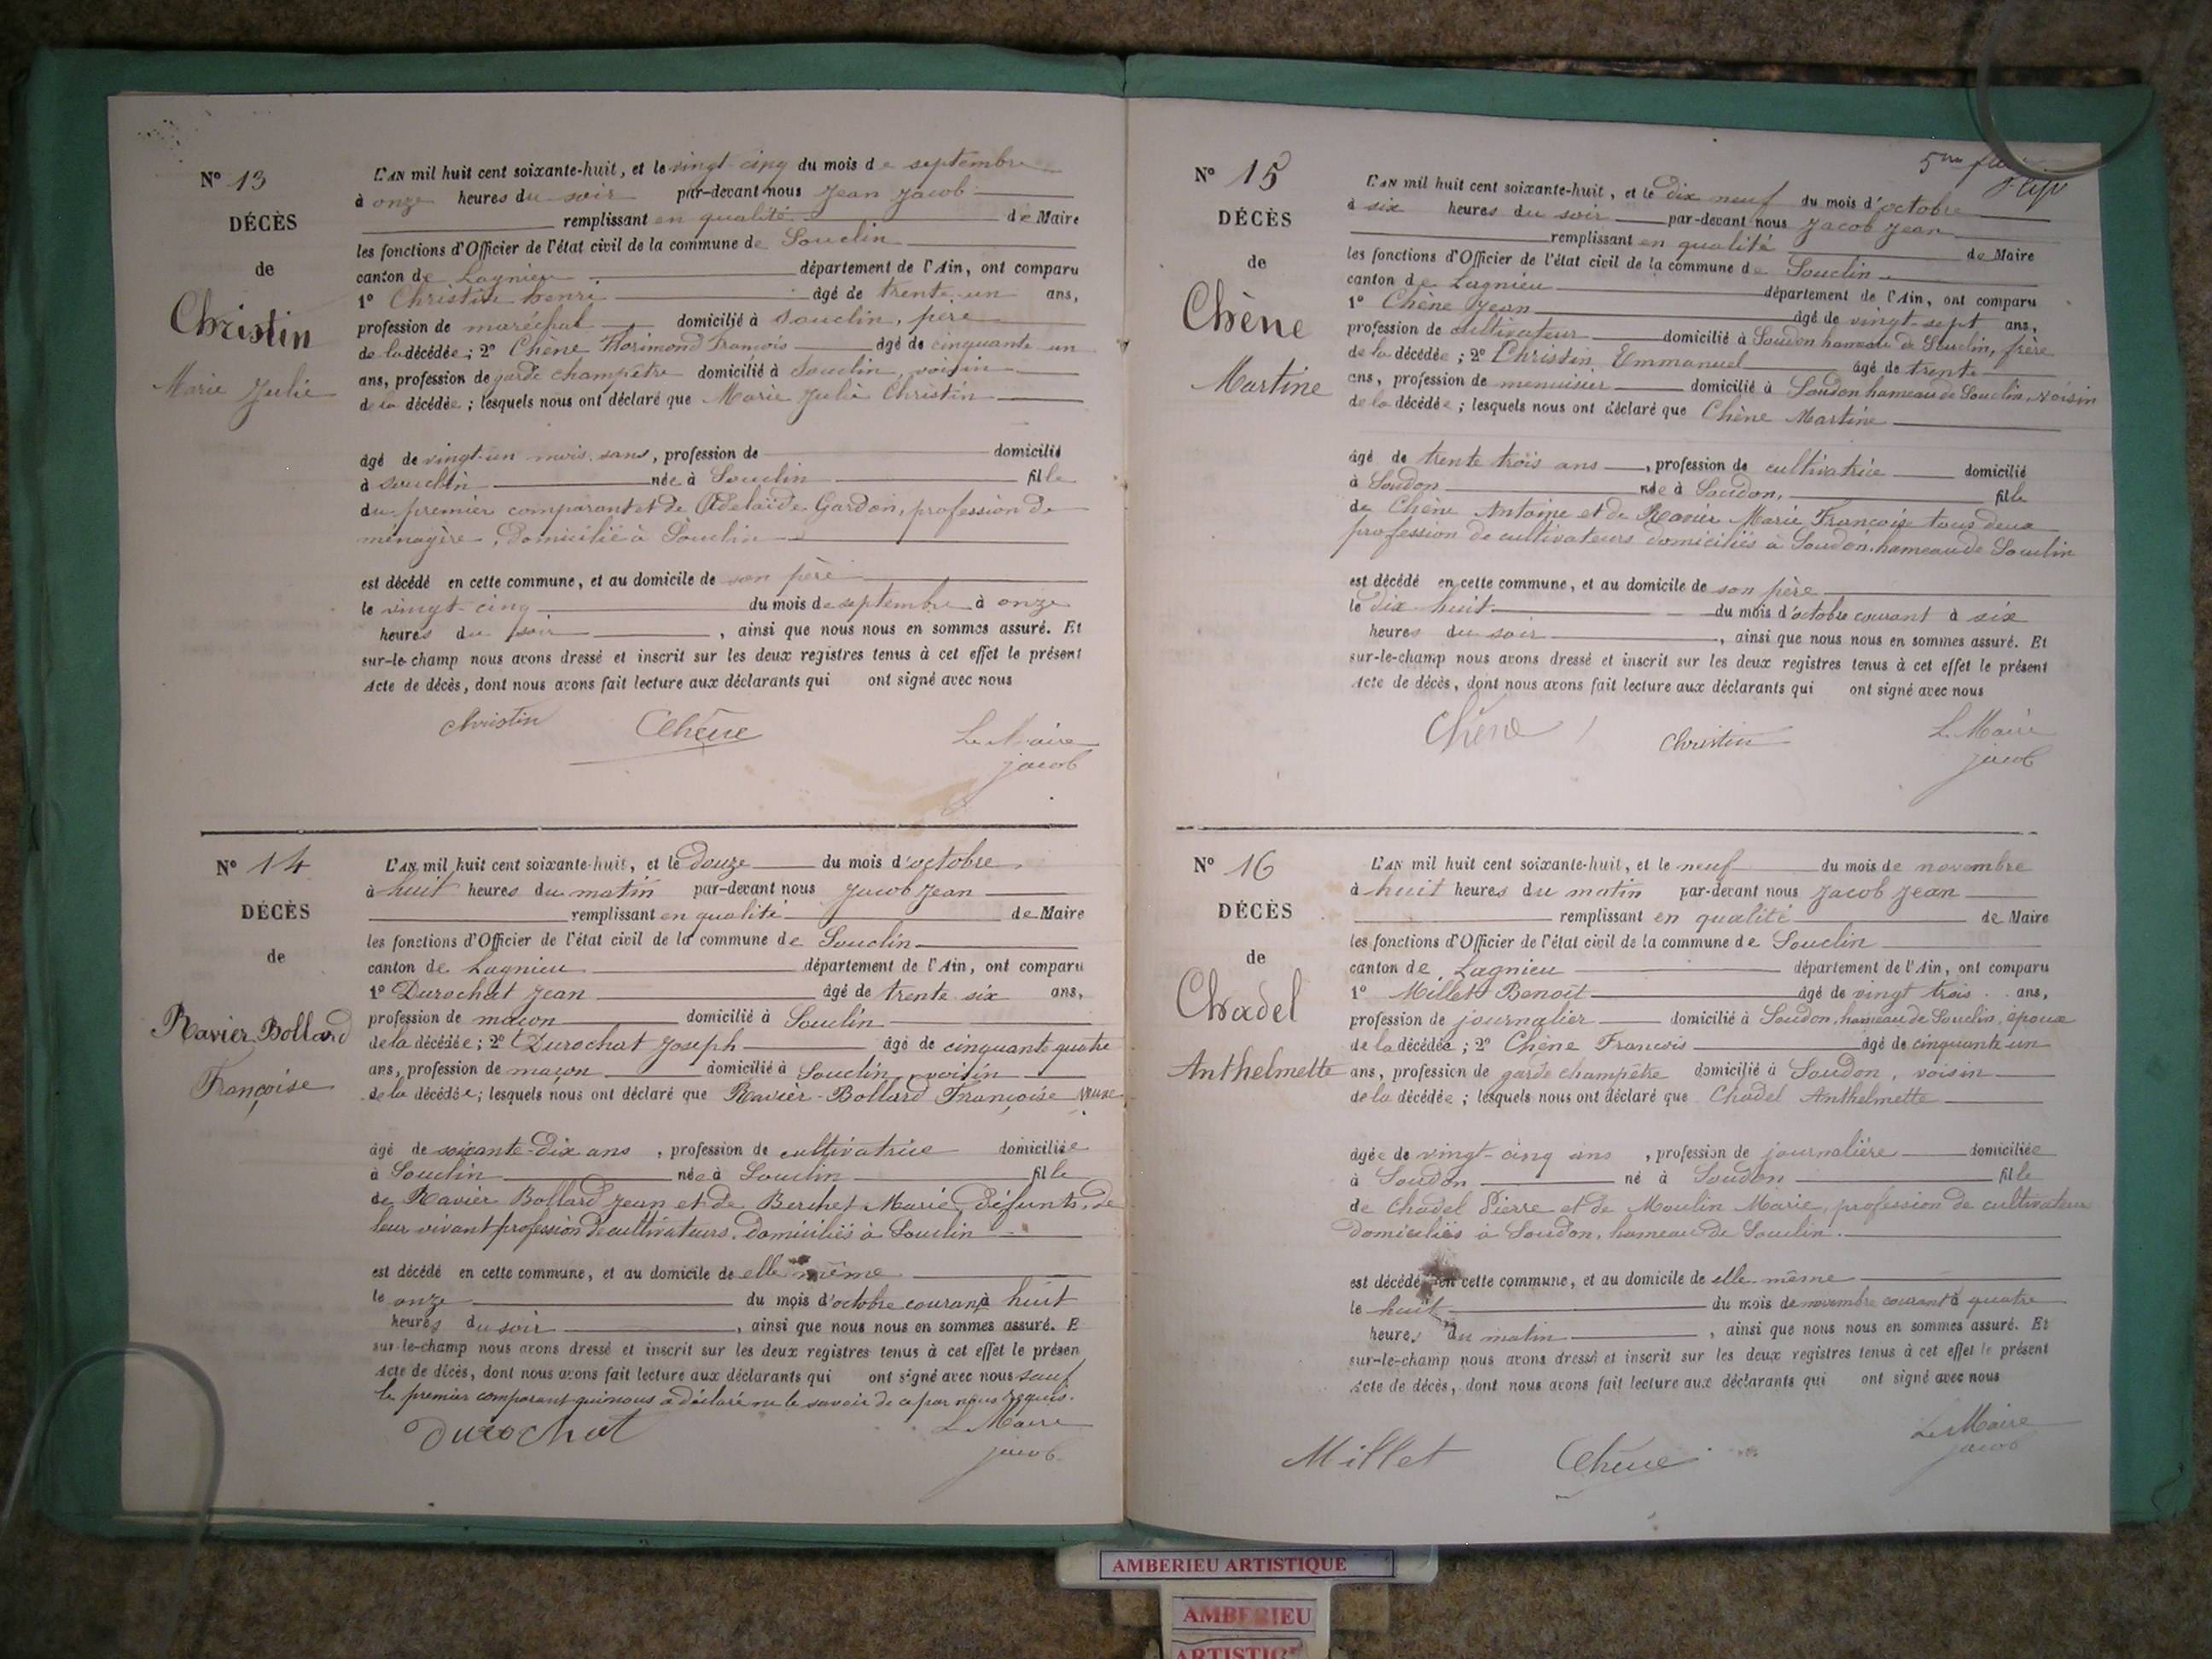 N° 13
DÉCÈS
de
Christin
Marie Julie
L'AN mil huit cent soixante-huit, et le vingt-cinq du mois de septembre
à onze heures du soir par-devant nous Jean Jacob
remplissant en qualité de Maire
les fonctions d'Officier de l'état civil de la commune de Souclin
canton de Lagnieu département de l'Ain, ont comparu
1° Christin henri âgé de trente-un ans,
profession de maréchal domicilié à Souclin, père
de la décédée; 2° Chêne Florimond François âgé de cinquante un
ans, profession de garde champêtre domicilié à Souclin, voisin
de la décédée; lesquels nous ont déclaré que Marie Julie Christin
âgé de vingt-un mois sans, profession de domicilié
à souclin née à Souclin fille
du premier comparant et de Adelaïde Gardon, profession de
ménagère, domicilié à Souclin
est décédé en cette commune, et au domicile de son père
le vingt-cinq du mois de septembre à onze
heures du soir, ainsi que nous nous en sommes assuré. Et
sur-le-champ nous avons dressé et inscrit sur les deux registres tenus à cet effet le présent
Acte de décès, dont nous avons fait lecture aux déclarants qui ont signé avec nous
christin Chêne Le Maire
jacob
N° 14
DÉCÈS
de
Ravier Bollard
Françoise
L'AN mil huit cent soixante-huit, et le douze du mois d'octobre
à huit heures du matin par-devant nous Jacob Jean
remplissant en qualité de Maire
les fonctions d'Officier de l'état civil de la commune de Souclin
canton de Lagnieu département de l'Ain, ont comparu
1° Durochat Jean âgé de trente six ans,
profession de maçon domicilié à Souclin
de la décédée; 2° Durochat Joseph âgé de cinquante quatre
ans, profession de maçon domicilié à Souclin, voisin
de la décédée; lesquels nous ont déclaré que Ravier-Bollard Françoise veuve
âgé de soixante-dix ans, profession de cultivatrice domiciliée
à Souclin née à Souclin fille
de Ravier Bollard Jean et de Berchet Marie, défunts, de
leur vivant profession de cultivateurs, domiciliés à Souclin
est décédé en cette commune, et au domicile de elle même
le onze du mois d'octobre courant à huit
heures du soir, ainsi que nous nous en sommes assuré. E
sur-le-champ nous avons dressé et inscrit sur les deux registres tenus à cet effet le présen
Acte de décès, dont nous avons fait lecture aux déclarants qui ont signé avec nous sauf
le premier comparant qui nous a déclaré ne le savoir de ce par nous requis.
Durochat Le Maire
jacob
N° 15
DÉCÈS
de
Chêne
Martine
5me
L'AN mil huit cent soixante-huit, et le dix neuf du mois d'octobre
à six heures du soir par-devant nous Jacob Jean
remplissant en qualité de Maire
les fonctions d'Officier de l'état civil de la commune de Souclin
canton de Lagnieu département de l'Ain, ont comparu
1° Chêne Jean âgé de vingt-sept ans,
profession de cultivateur domicilié à Soudon hameau de Souclin, frère
de la décédée; 2° Christin Emmanuel âgé de trente
ans, profession de menuisier domicilié à Soudon hameau de Souclin, voisin
de la décédée; lesquels nous ont déclaré que Chêne Martine
âgé de trente trois ans, profession de cultivatrice domicilié
à Soudon née à Soudon, fille
de Chêne Antoine et de Ravier Marie Françoise tous deux
profession de cultivateurs domiciliés à Soudon, hameau de Souclin
est décédé en cette commune, et au domicile de son père
le dix-huit du mois d'octobre courant à six
heures du soir, ainsi que nous nous en sommes assuré. Et
sur-le-champ nous avons dressé et inscrit sur les deux registres tenus à cet effet le présent
Acte de décès, dont nous avons fait lecture aux déclarants qui ont signé avec nous
Chêne Christin Le Maire
jacob
N° 16
DÉCÈS
de
Chadel
Anthelmette
L'AN mil huit cent soixante-huit, et le neuf du mois de novembre
à huit heures du matin par-devant nous Jacob Jean
remplissant en qualité de Maire
les fonctions d'Officier de l'état civil de la commune de Souclin
canton de Lagnieu département de l'Ain, ont comparu
1° Millet Benoit âgé de vingt trois ans,
profession de journalier domicilié à Soudon, hameau de Souclin, époux
de la décédée; 2° Chêne François âgé de cinquante-un
ans, profession de garde champêtre domicilié à Soudon, voisin
de la décédée; lesquels nous ont déclaré que Chadel Anthelmette
âgée de vingt-cinq ans, profession de journalière domiciliée
à Soudon né à Soudon fille
de Chadel Pierre et de Moulin Marie, profession de cultivateur
domiciliés à Soudon, hameau de Souclin.
est décédé en cette commune, et au domicile de elle-même
le huit du mois de novembre courant à quatre
heures du matin, ainsi que nous nous en sommes assuré. Et
sur-le-champ nous avons dressé et inscrit sur les deux registres tenus à cet effet le présent
Acte de décès, dont nous avons fait lecture aux déclarants qui ont signé avec nous
Millet Chêne Le Maire
jacob
AMBERIEU ARTISTIQUE
AMBERIEU